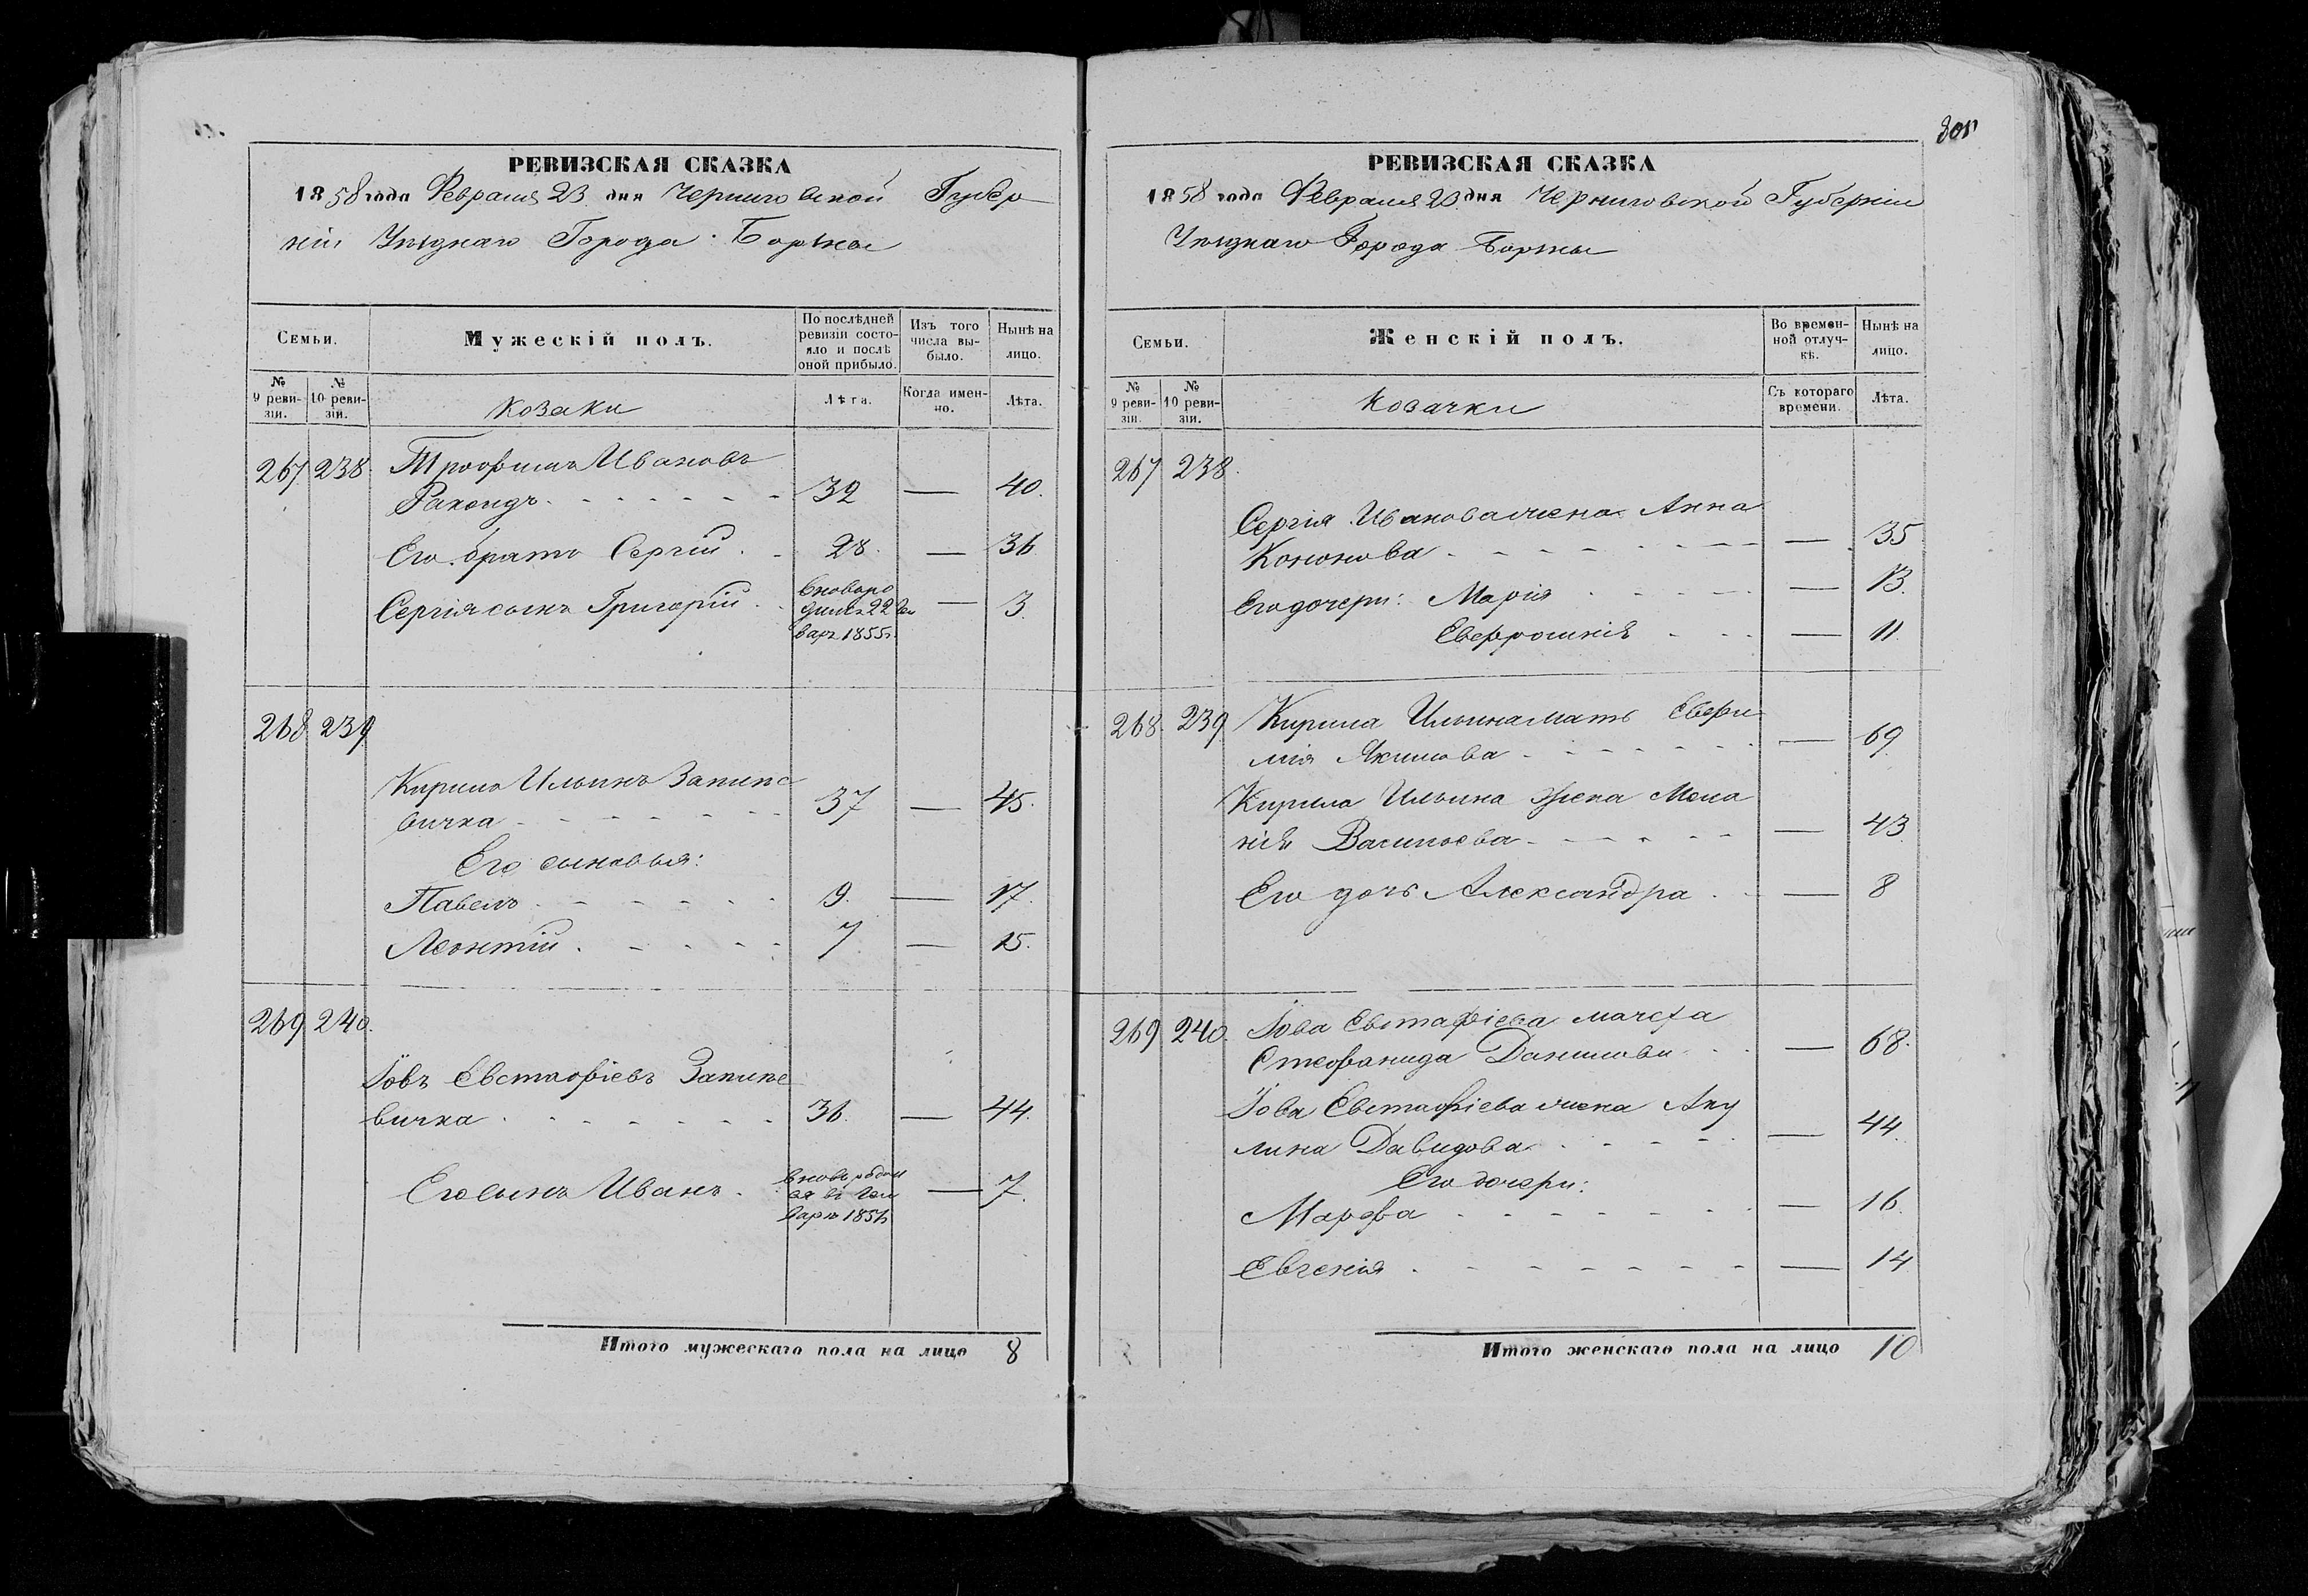 РЕВИЗСКАЯ СКАЗКА
1858 года Февраля 23 дня Черниговской Губер
ніи Уѣзднаго Города Борзны
Семьи.
Мужескій полъ.
По послѣдней ревизіи состояло и послѣ оной прибыло.
Изъ того числа выбыло.
Нынѣ на лицо.
№ 9 ревизіи.
№ 10 ревизіи.
Козаки
Лѣта.
Когда именно.
Лѣта.
267 238. Трофимъ Ивановъ
32 — 40.
Его братъ Сергій 28. — 36
Сергія сынъ Григорій вновь родился 22 Ген варя 1855 г. — 3.
268 239
Кирило Ильинъ Запинс
вичка 37 — 45.
Его сыновья:
Павелъ 9. — 17.
Леонтій 7 — 15.
269 240.
Іовъ Евстафіевъ Запинс
вичка 36. — 44.
Его сынъ Иванъ вновь родил ся въ Ген варѣ 1851 г. — 7.
Итого мужескаго пола на лицо 8
РЕВИЗСКАЯ СКАЗКА
1858 года Февраля 23 дня Черниговской Губерніи
Уѣзднаго Города Борзны
Семьи.
Женскій полъ.
Во временной отлучкѣ.
Нынѣ на лицо.
№ 9 ревизіи.
№ 10 ревизіи.
Козачки
Съ котораго времени.
Лѣта.
267 238.
Сергія Иванова жена Анна
Кононова — 35
Его дочери: Марія — 13.
Евфросинія — 11.
268. 239 Кирила Ильина мать Евфи
мія Якимова — 69.
Кирила Ильина жена Мела
нія Васильева — 43
Его дочь Александра — 8
269 240. Іова Евстафіева мачеха
Стефанида Данилова — 68.
Іова Евстафіева жена Аку
лина Давидова — 44.
Его дочери:
Марфа — 16.
Евгенія — 14
Итого женскаго пола на лицо 10